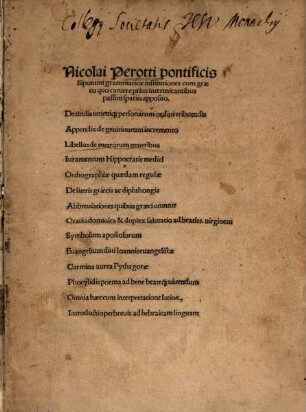 Collegij Societatis Jesu Monachij
Nicolai Perotti pontificis
Sipontini grammaticæ institutiones cum græ
co quo carure prius intermicantibus
passim spatiis apposito.
De stilis unicuiq; personarum ordini tribuendis
Appendix de genitiuorum incremento
Libellus de metrorum generibus
Iuramentum Hippocratis medici
Orthographiæ quædam regulæ
De literis græcis ac diphthongis
Abbreuiationes quibus græci utuntur
Oratio dominica & duplex salutatio ad beatiss. uirginem
Symbolum apostolorum
Euangelium diui Ioannis euangelistæ
Carmina aurea Pythagoræ
Phocylidis poema ad bene beateq; uiuendum
Omnia hæc cum interpretatione latina,
Introductio perbreuis ad hebraicam linguam